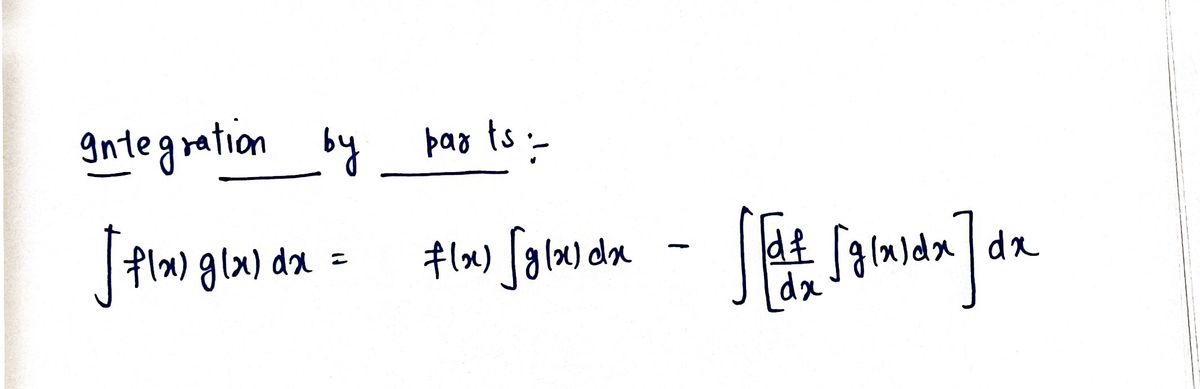 Integration by parts :-
∫ f(x) g(x) dx = f(x) ∫g(x) dx - ∫ [df/dx ∫g(x)dx] dx